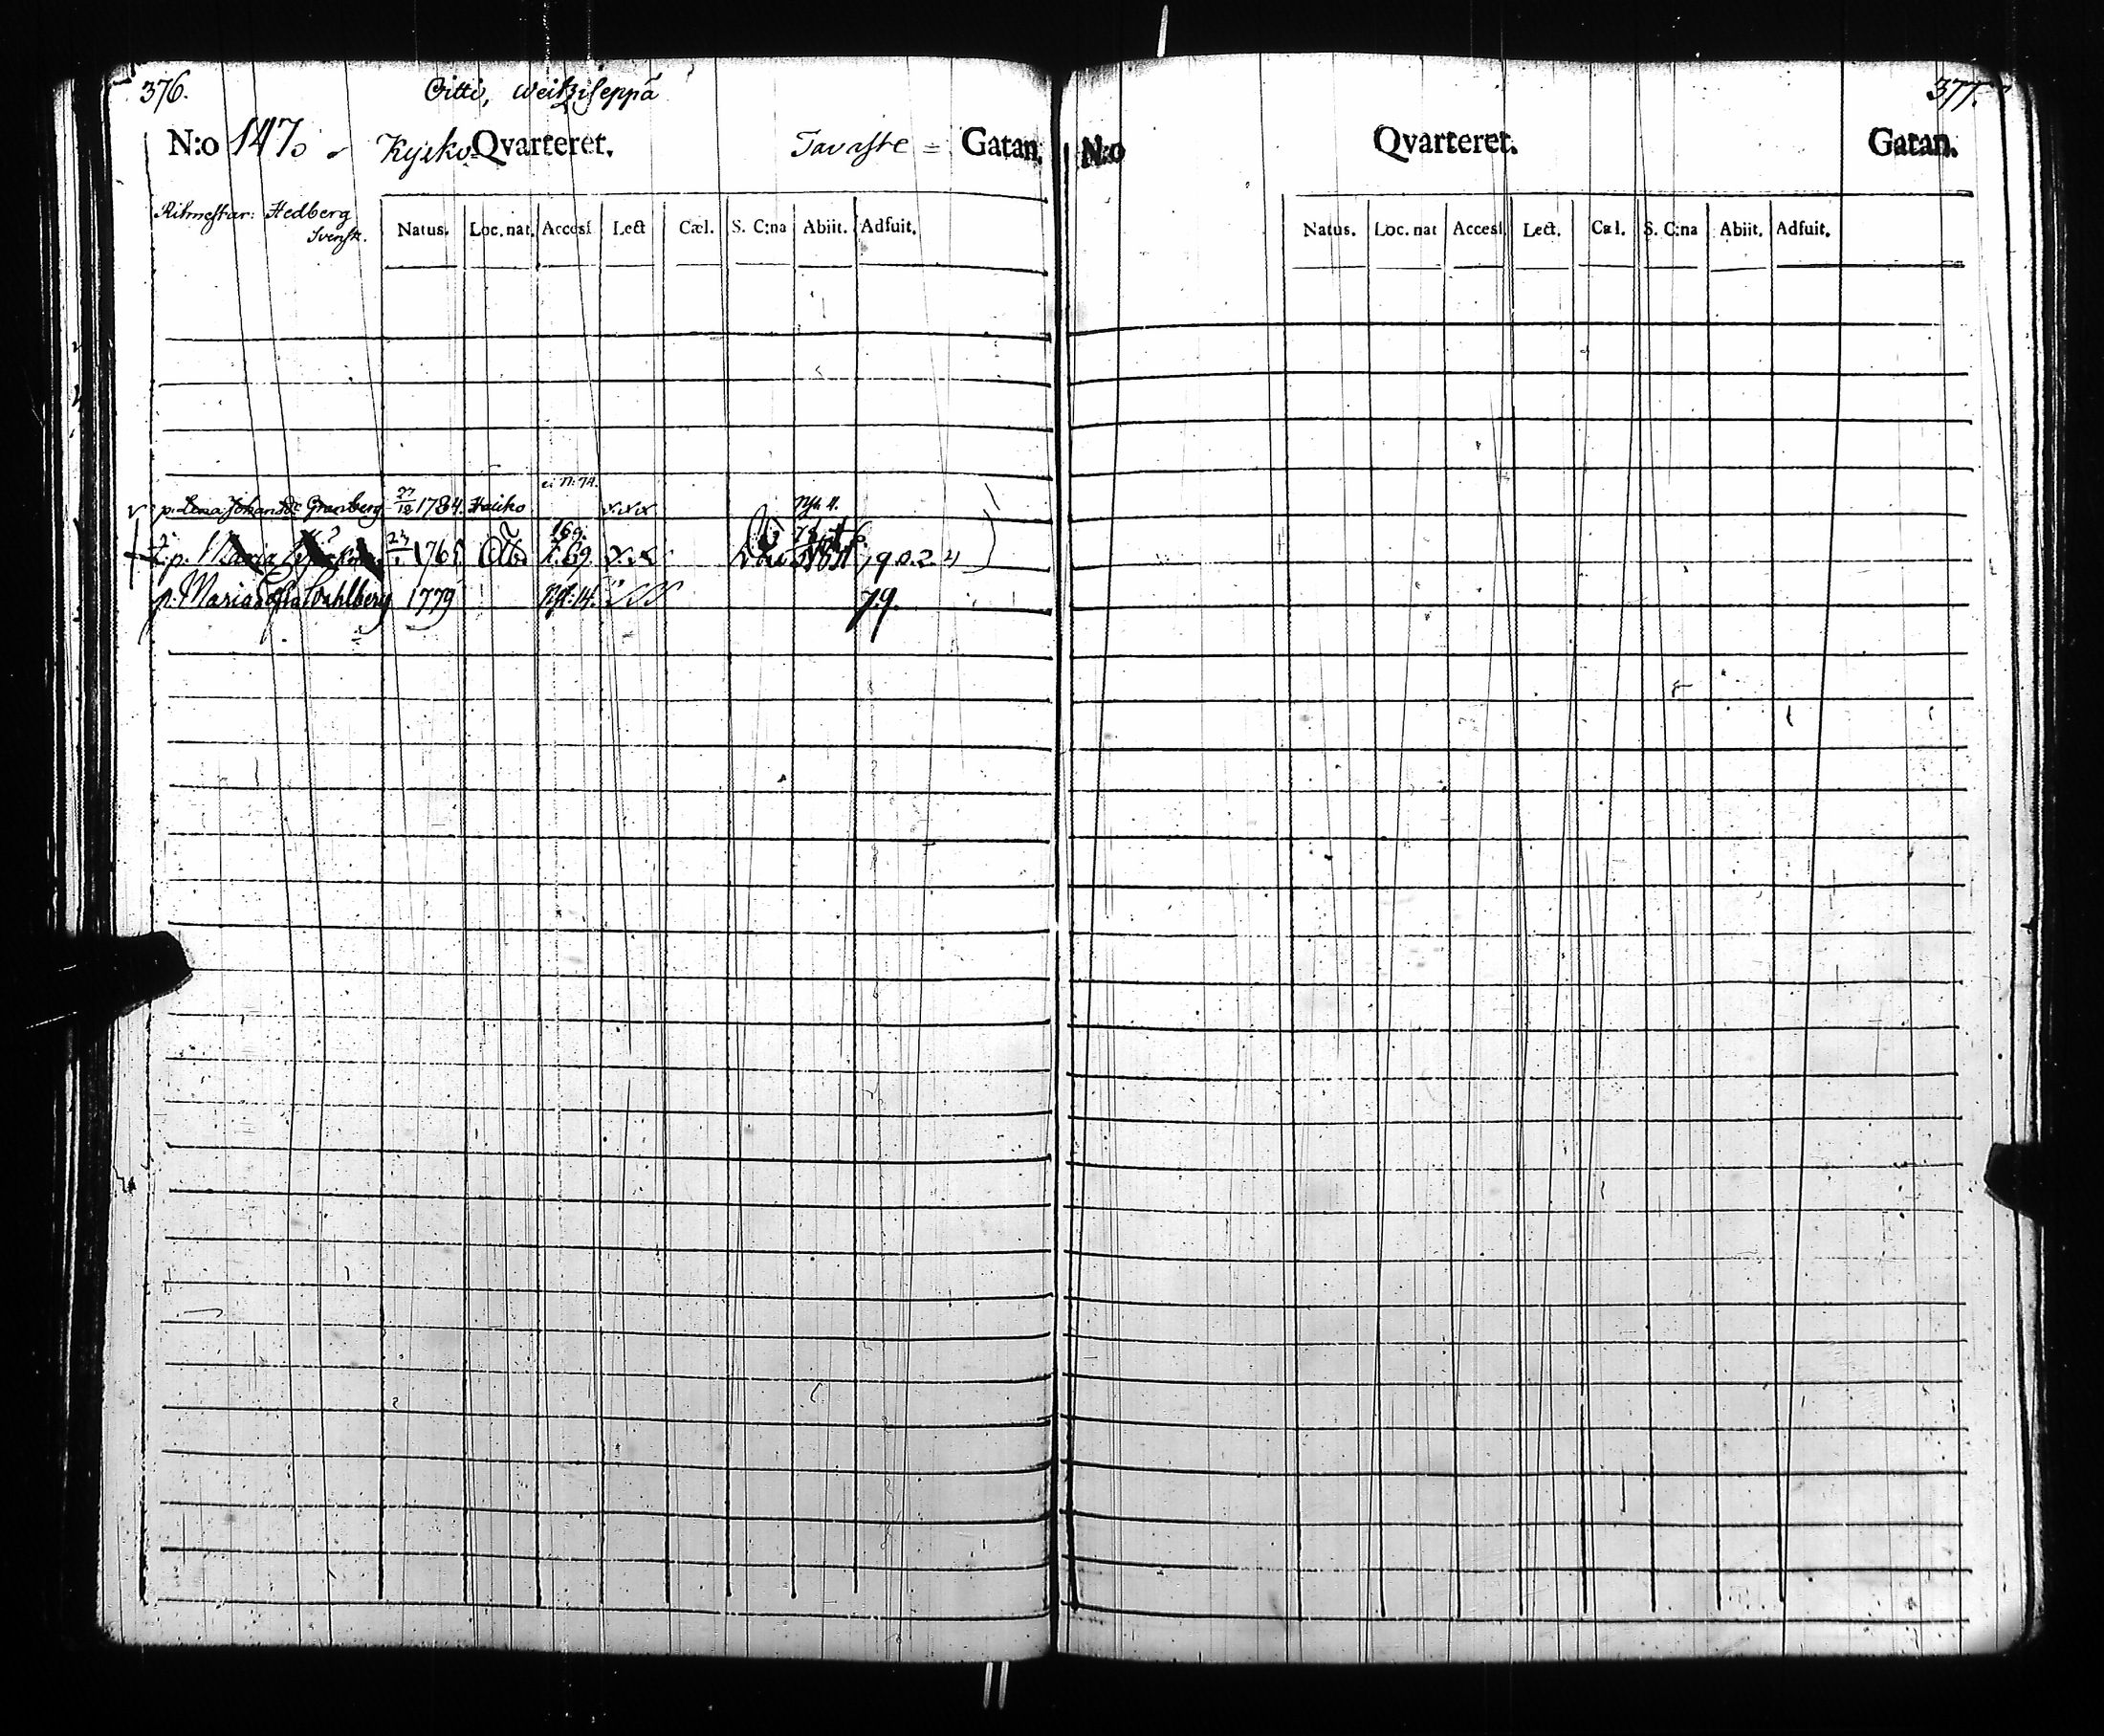 376.
Pitti, weitziseppä
N:o 147. Kyrko Qvarteret. Tavaste = Gatan.
Ritmestar: Hedberg
Svensk.
Natus. Loc. nat. Accesſ Lect Cæl. S. C:na Abiit. Adfuit.
p. Lena Johansdr Granberg 27/12 1784. Haiko x.x.x Ny. 4.
p. Maria 1765 Åbo 169. K. 69. x.x 7 9. 0. 2. 4
p. Maria Sofia Wahlberg 1779 Ny. 14. 7.9.
377.
N:o Qvarteret. Gatan.
Natus. Loc. nat Accesſ. Lect. Cæl. S. C:na Abiit. Adfuit.